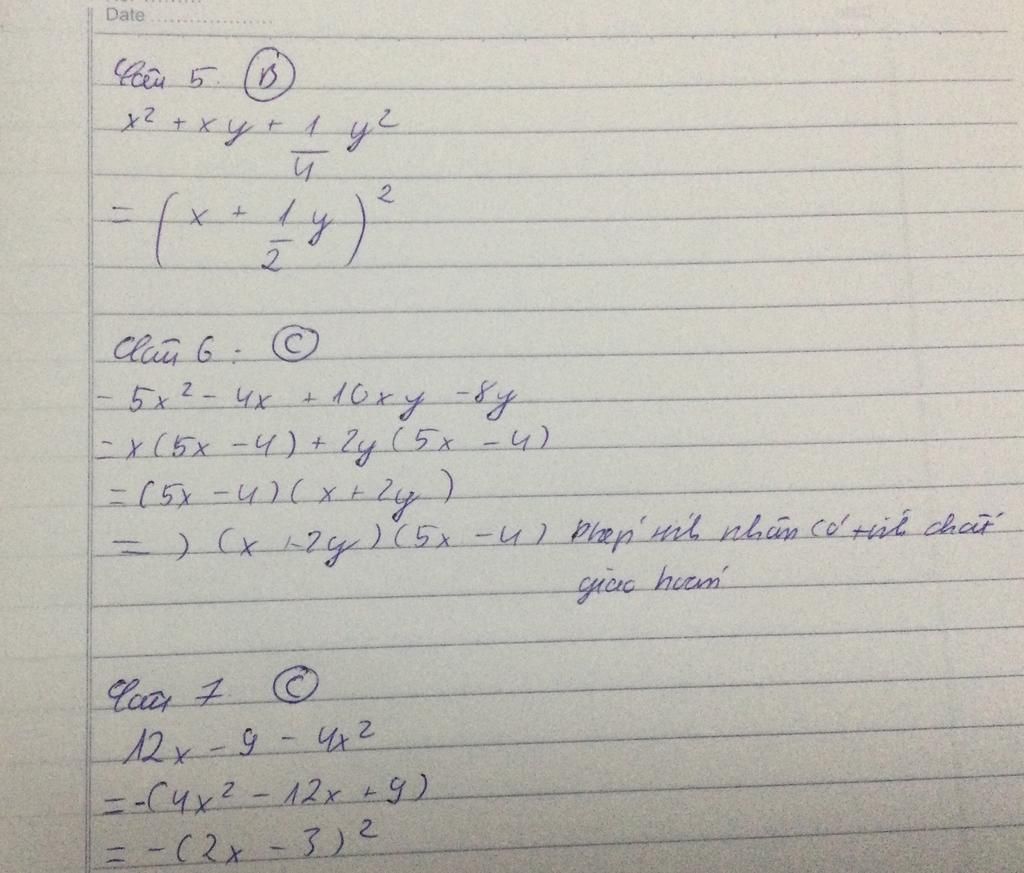 Date ..................
Câu 5. B
x² + xy + 1/4 y²
= (x + 1/2 y)²
Câu 6 : C
- 5x² - 4x + 10xy - 8y
= x(5x - 4) + 2y(5x - 4)
= (5x - 4)(x + 2y)
= ) (x + 2y)(5x - 4) Phép tính nhân có tính chất
giao hoán
Câu 7 C
12x - 9 - 4x²
= -(4x² - 12x + 9)
= -(2x - 3)²